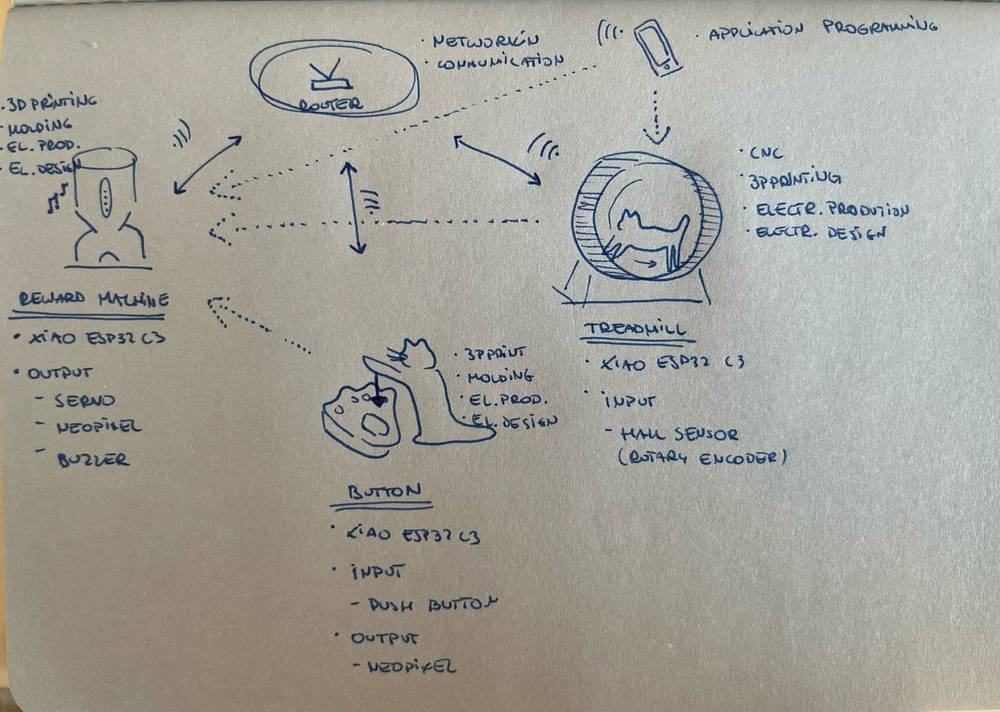 · NETWORKIN
· COMMUNICATION
ROUTER
· APPLICATION PROGRAMMING
· 3D PRINTING
· MOLDING
· EL. PROD.
· EL. DESIGN
REWARD MACHINE
· XIAO ESP32 C3
· OUTPUT
- SERVO
- NEOPIXEL
- BUZZER
· CNC
· 3PPRINTING
· ELECTR. PRODUTION
· ELECTR. DESIGN
TREADMILL
· XIAO ESP32 C3
· INPUT
- HALL SENSOR
(ROTARY ENCODER)
· 3PPRINT
· MOLDING
· EL. PROD.
· EL. DESIGN
BUTTON
· XIAO ESP32 C3
· INPUT
- PUSH BUTTON
· OUTPUT
- NEOPIXEL